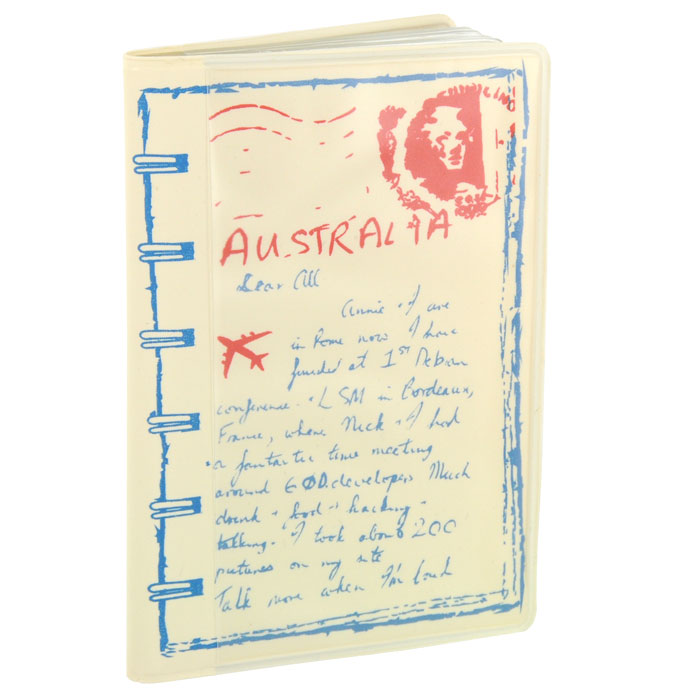 AUSTRALIA
Dear All
Annie & I are
in Rome now I have
funded at 1ST Debian
conference & LSM in Bordeaux,
France, where Nick & I had
a fantastic time meeting
around 60D.developers Much
drink & food & hacking &
talking. I took about 200
pictures on my site
Talk more when I'm